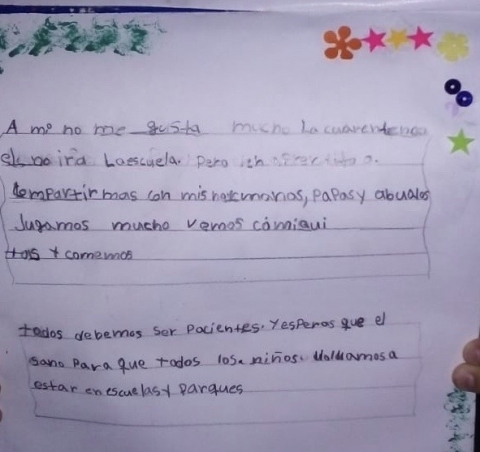 A mº no me gusta mucho La cuarentena
el no ir a La escuela. Pero
compartir mas con mis hermanos, papas y abuelos
Jugamos mucho vemos cómiqui
tas y comemos
todos debemos ser pacientes. Y esperas que el
sano para que todos los niños. Volvamos a
estar en escuelas y parques